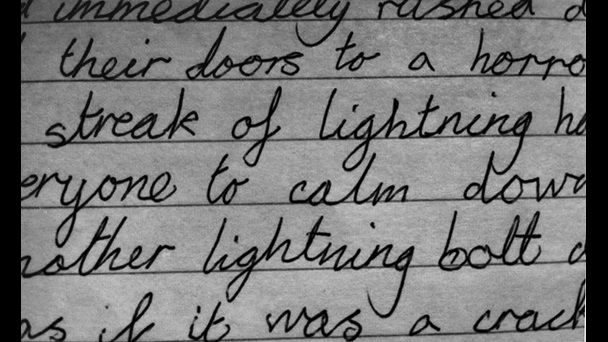 immediately rushed
their doors to a horro
streak of lightning ha
eryone to calm down
nother lightning bolt
as if it was a crack